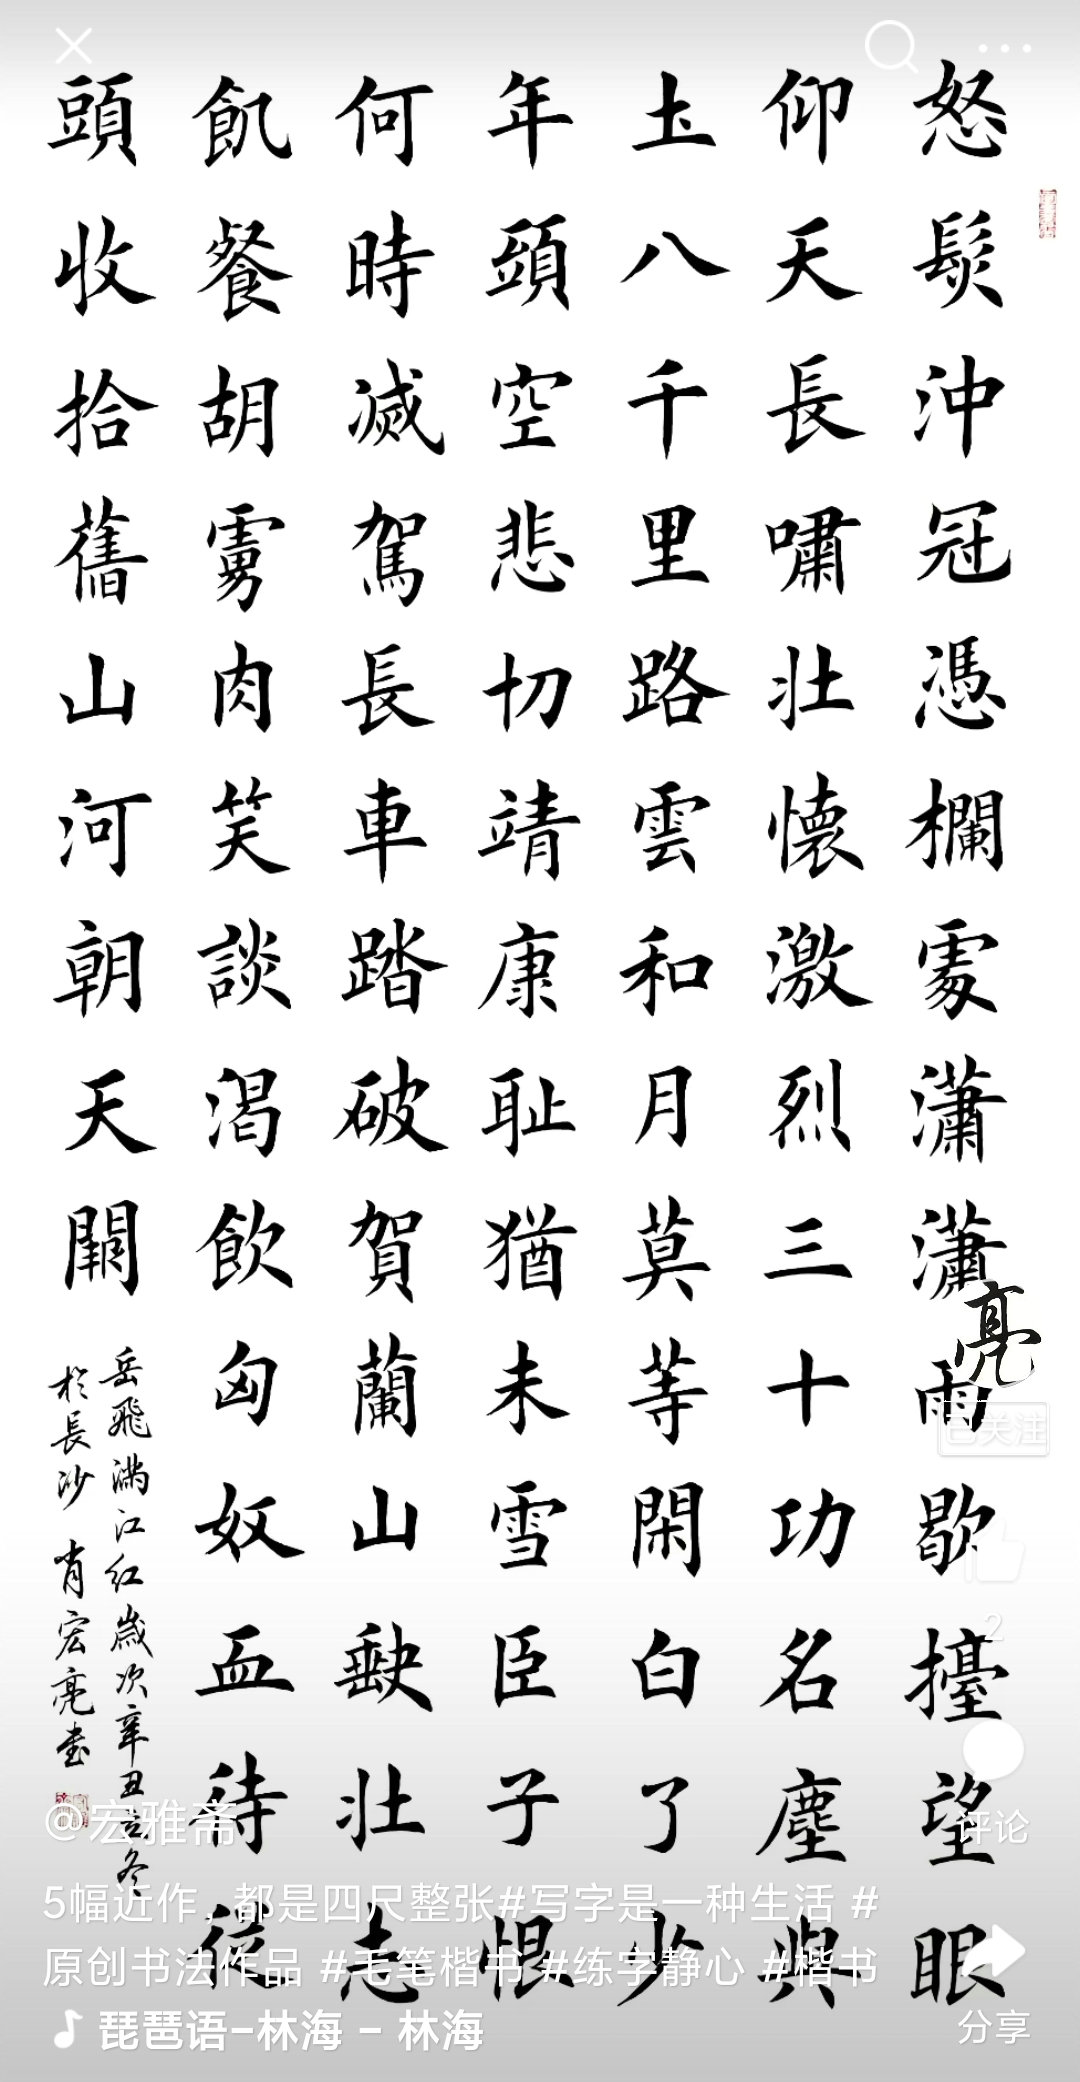 怒髮沖冠憑欄處瀟瀟雨歇擡望眼
仰天長嘯壯懷激烈三十功名塵與
土八千里路雲和月莫等閑白了少
年頭空悲切靖康恥猶未雪臣子恨
何時滅駕長車踏破賀蘭山缺壯志
飢餐胡虜肉笑談渴飲匈奴血待從
頭收拾舊山河朝天闕
岳飛滿江紅歲次辛丑立冬
於長沙肖宏亮書
亮
已关注
2
评论
分享
@宏雅斋
5幅近作，都是四尺整张#写字是一种生活 #
原创书法作品 #毛笔楷书 #练字静心 #楷书
琵琶语-林海 - 林海